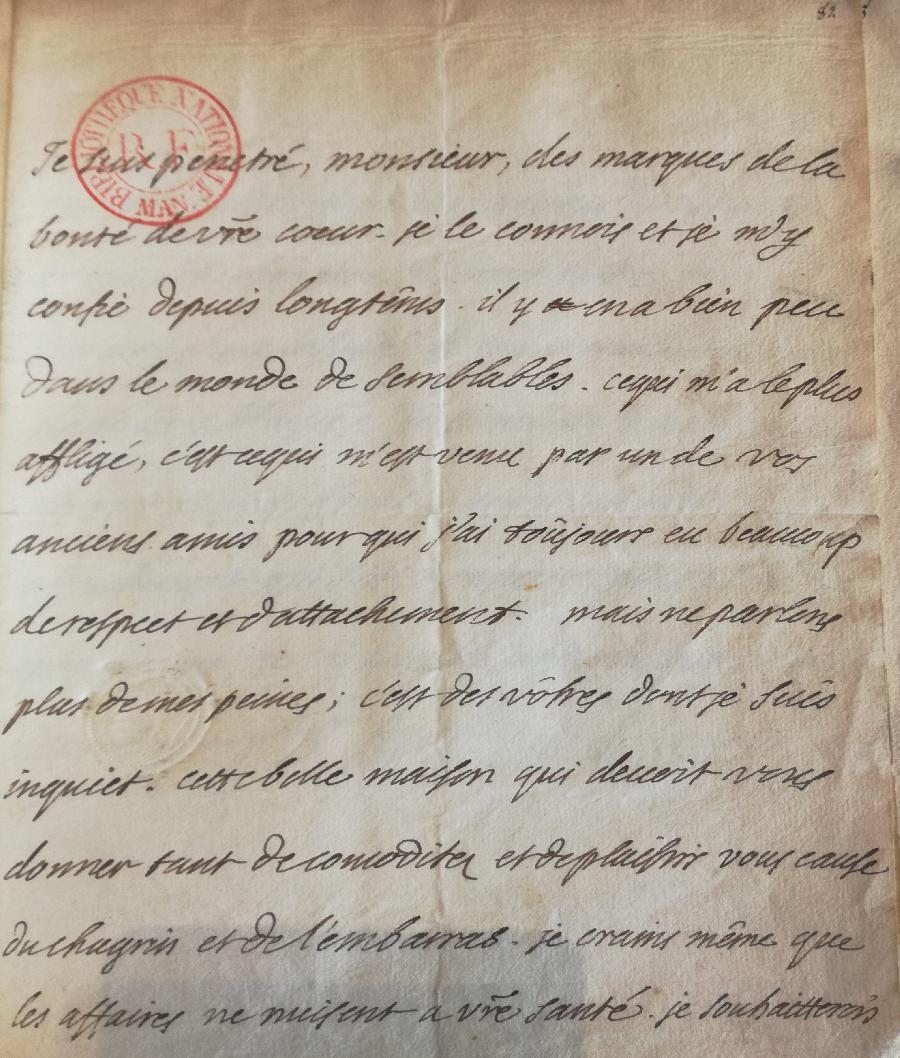 82
BIBLIOTHEQUE NATIONALE MAN.
R F
Je suis penetré, monsieur, des marques de la
bonté de vr̃e coeur. je le connois et je m'y
confie depuis longtẽms. il y a en a bien peu
dans le monde de semblables. cequi m'a leplus
affligé, c'est cequi m'est venu par un de vos
anciens amis pour qui j'ai toûjours eu beaucoup
de respect et d'attachement. mais ne parlons
plus de mes peines; c'est des vôtres dont je suis
inquiet. cette belle maison qui devoit vous
donner tant de comoditez et de plaisir vous cause
du chagrin et de l'embarras. je crains même que
les affaires ne nuisent a vr̃e santé. je souhaitterois